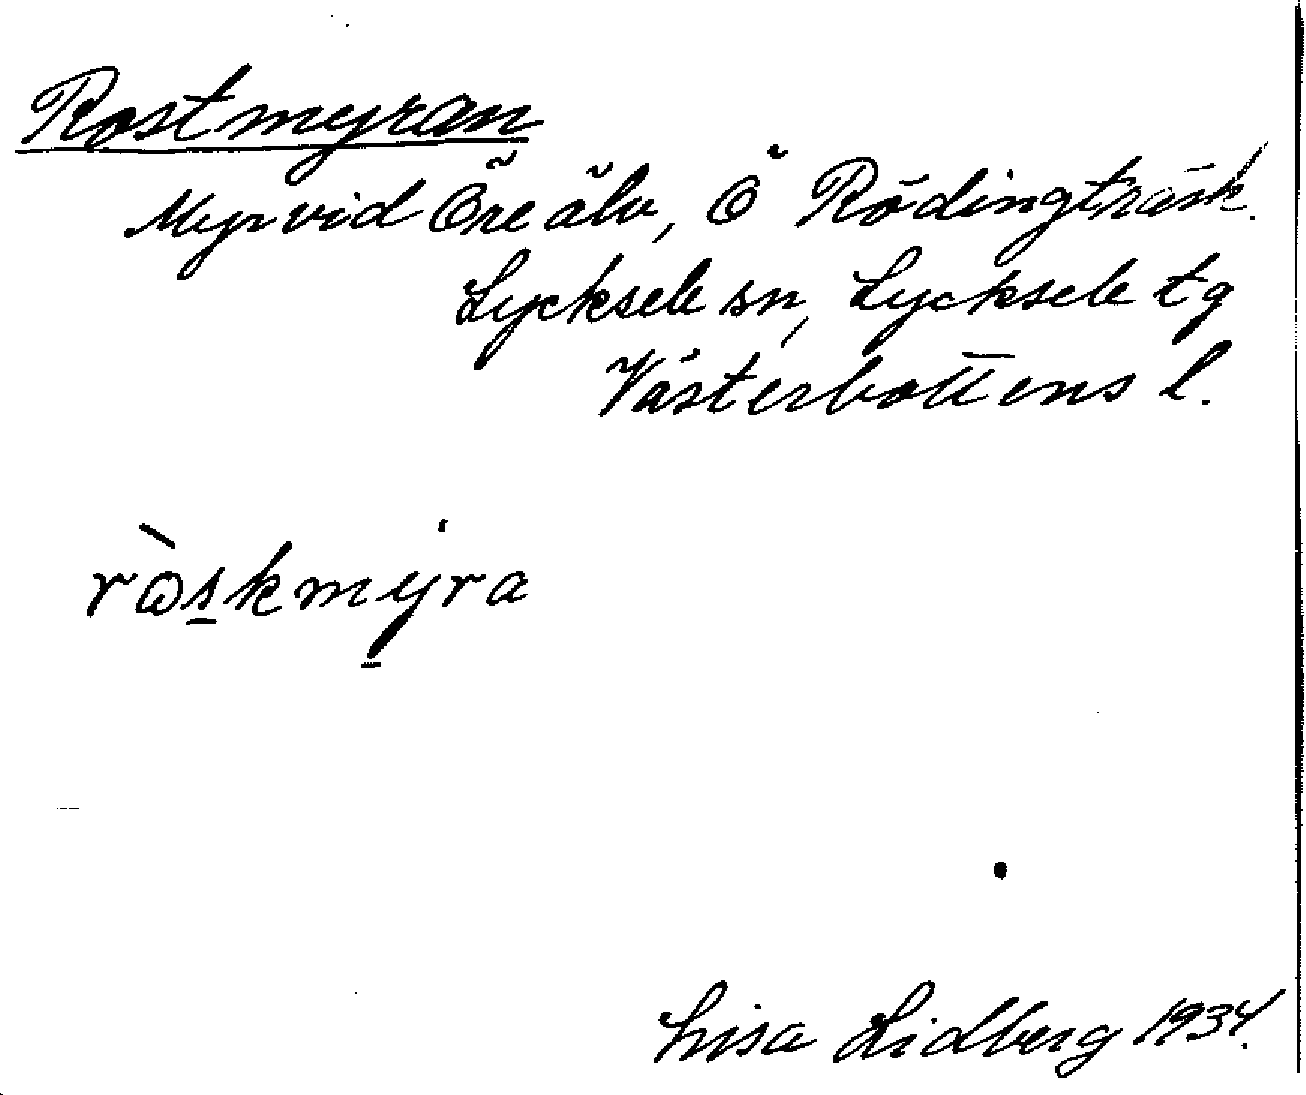 Rostmyran
Myr vid Öre älv, Ö Rödingträsk.
Lycksele sn, Lycksele tg
Västerbottens l.
ròskmyra
Lisa Lidberg 1934.